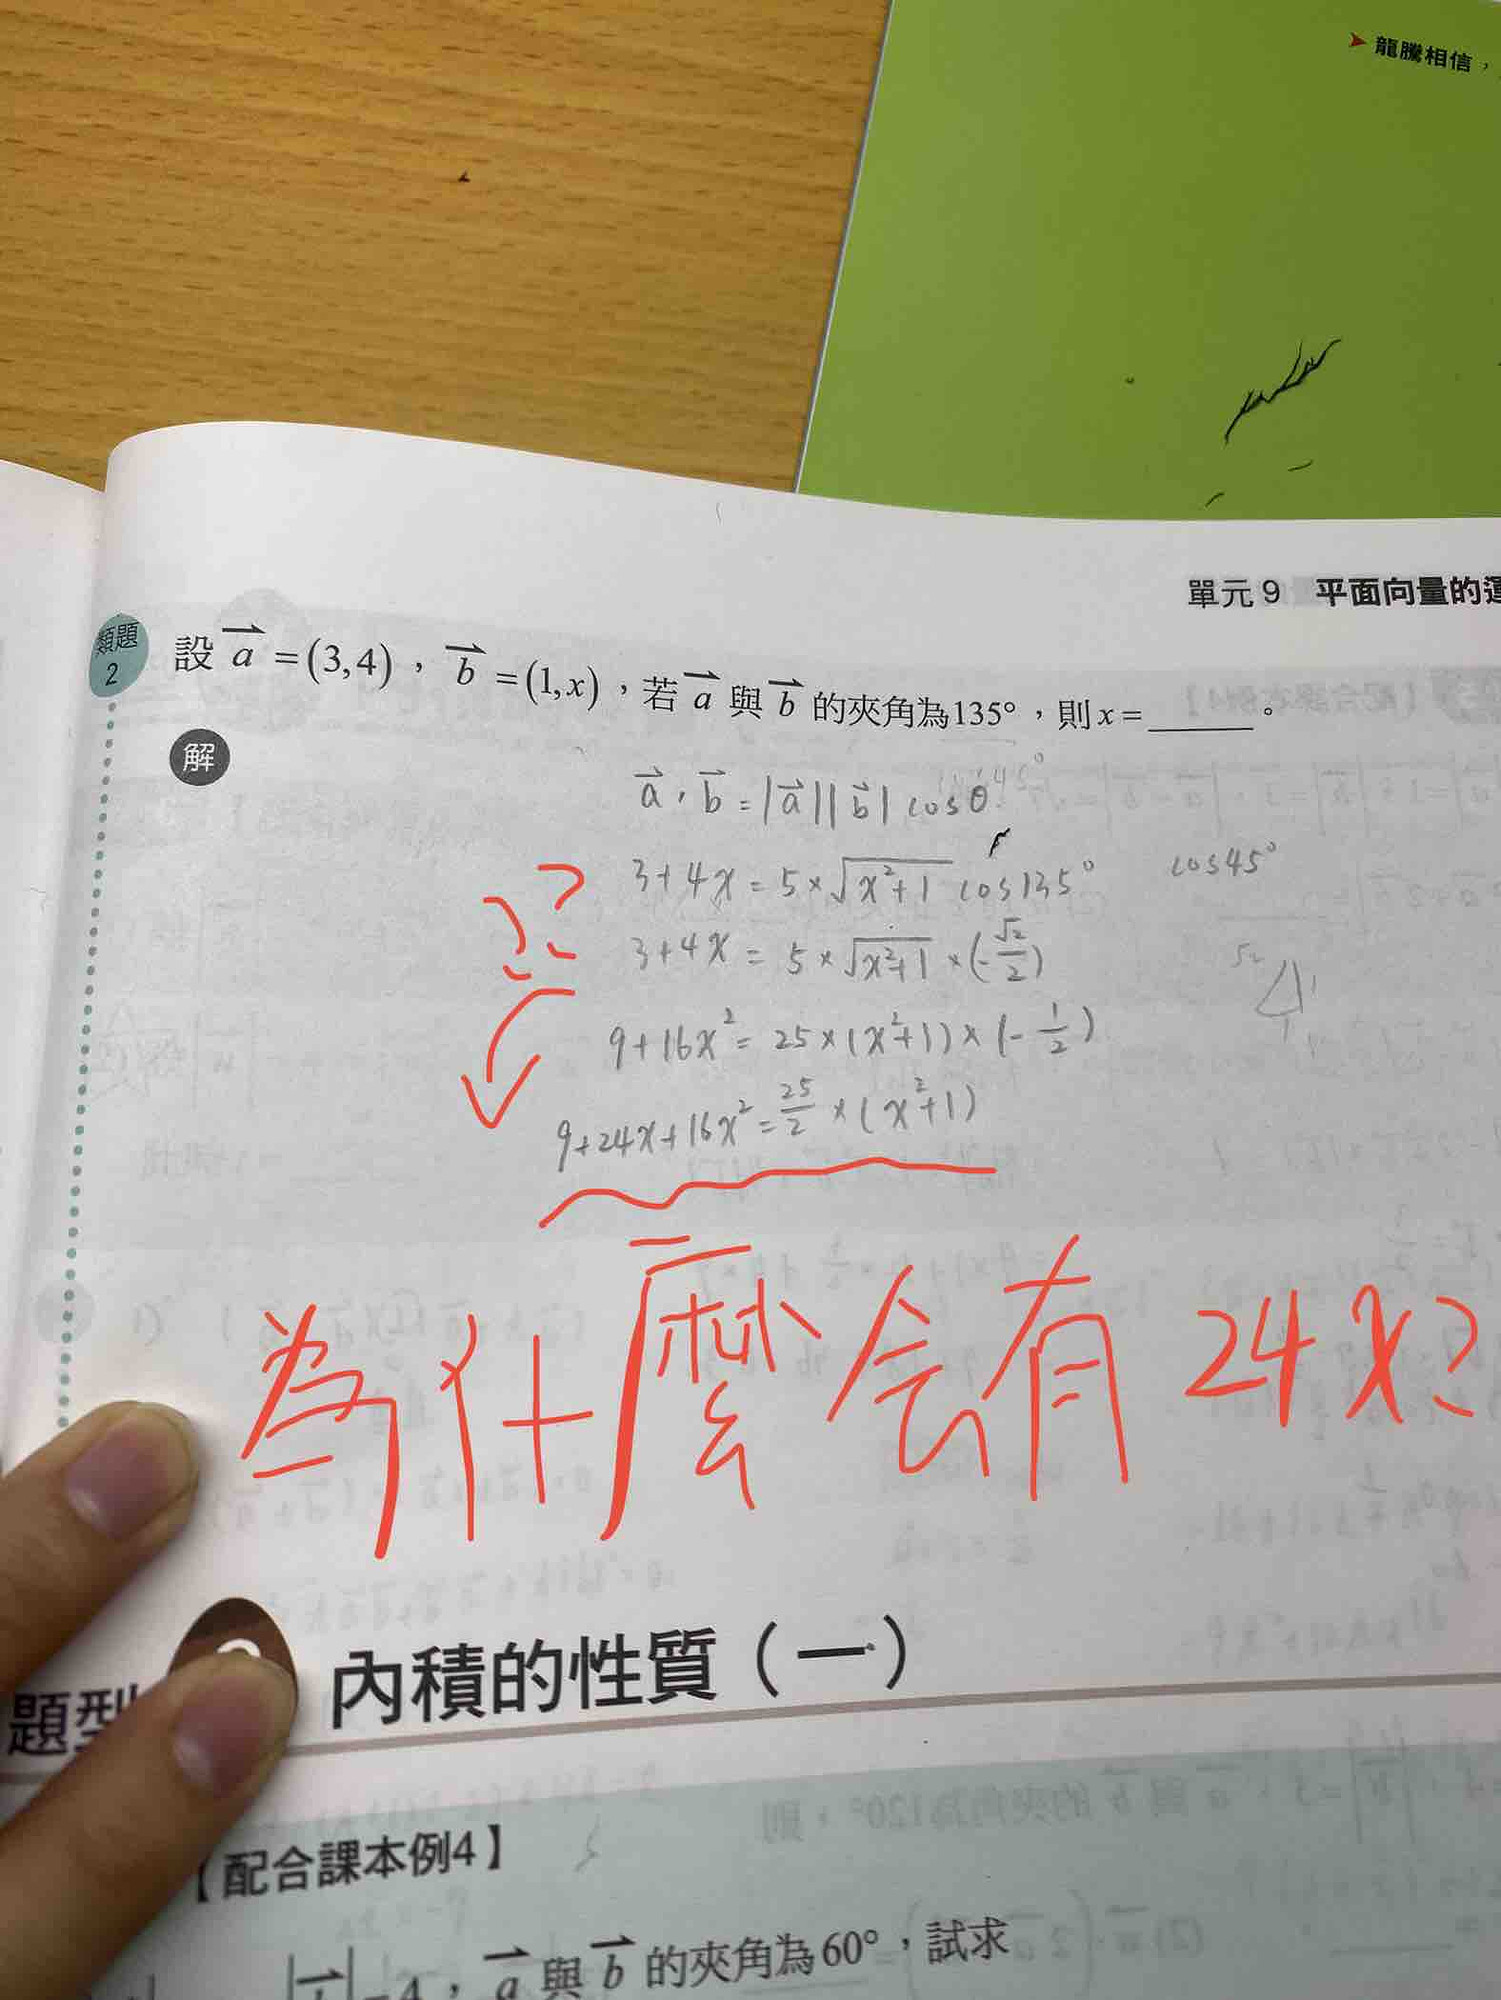 ➤ 龍騰相信，
單元 9 平面向量的運
類題
2
設 a = (3,4)，b = (1,x)，若 a 與 b 的夾角為135°，則 x = ______。
解
a · b = |a||b| cosθ
3+4x = 5×√(x²+1) cos135°
cos45°
3+4x = 5×√(x²+1) ×(-√2/2)
9+16x² = 25×(x²+1)×(-1/2)
9+24x+16x² = 25/2 ×(x²+1)
為什麼会有 24x?
題型
內積的性質（一）
【配合課本例4】
4，a 與 b 的夾角為 60°，試求